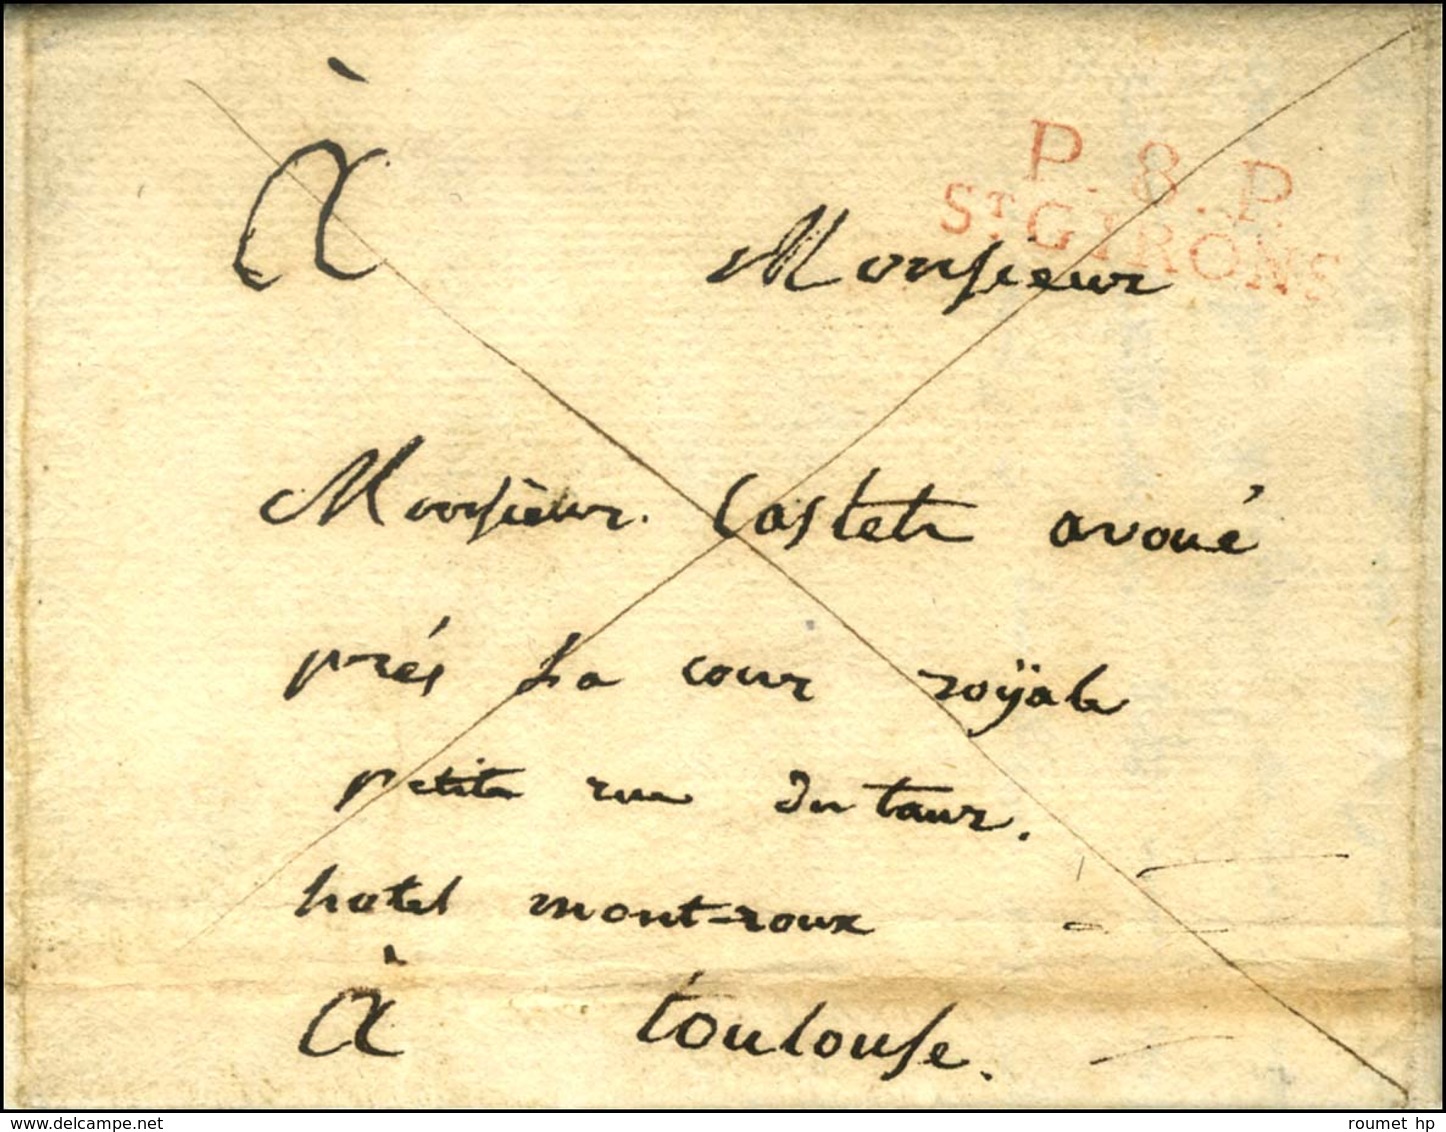 P. 8. P.
ST. GIRONS
À
Monsieur
Monsieur. Castets avoué
prés la cour roÿale
petite rue du taur.
hotel mont-roux
À toulouse.
roumet hp